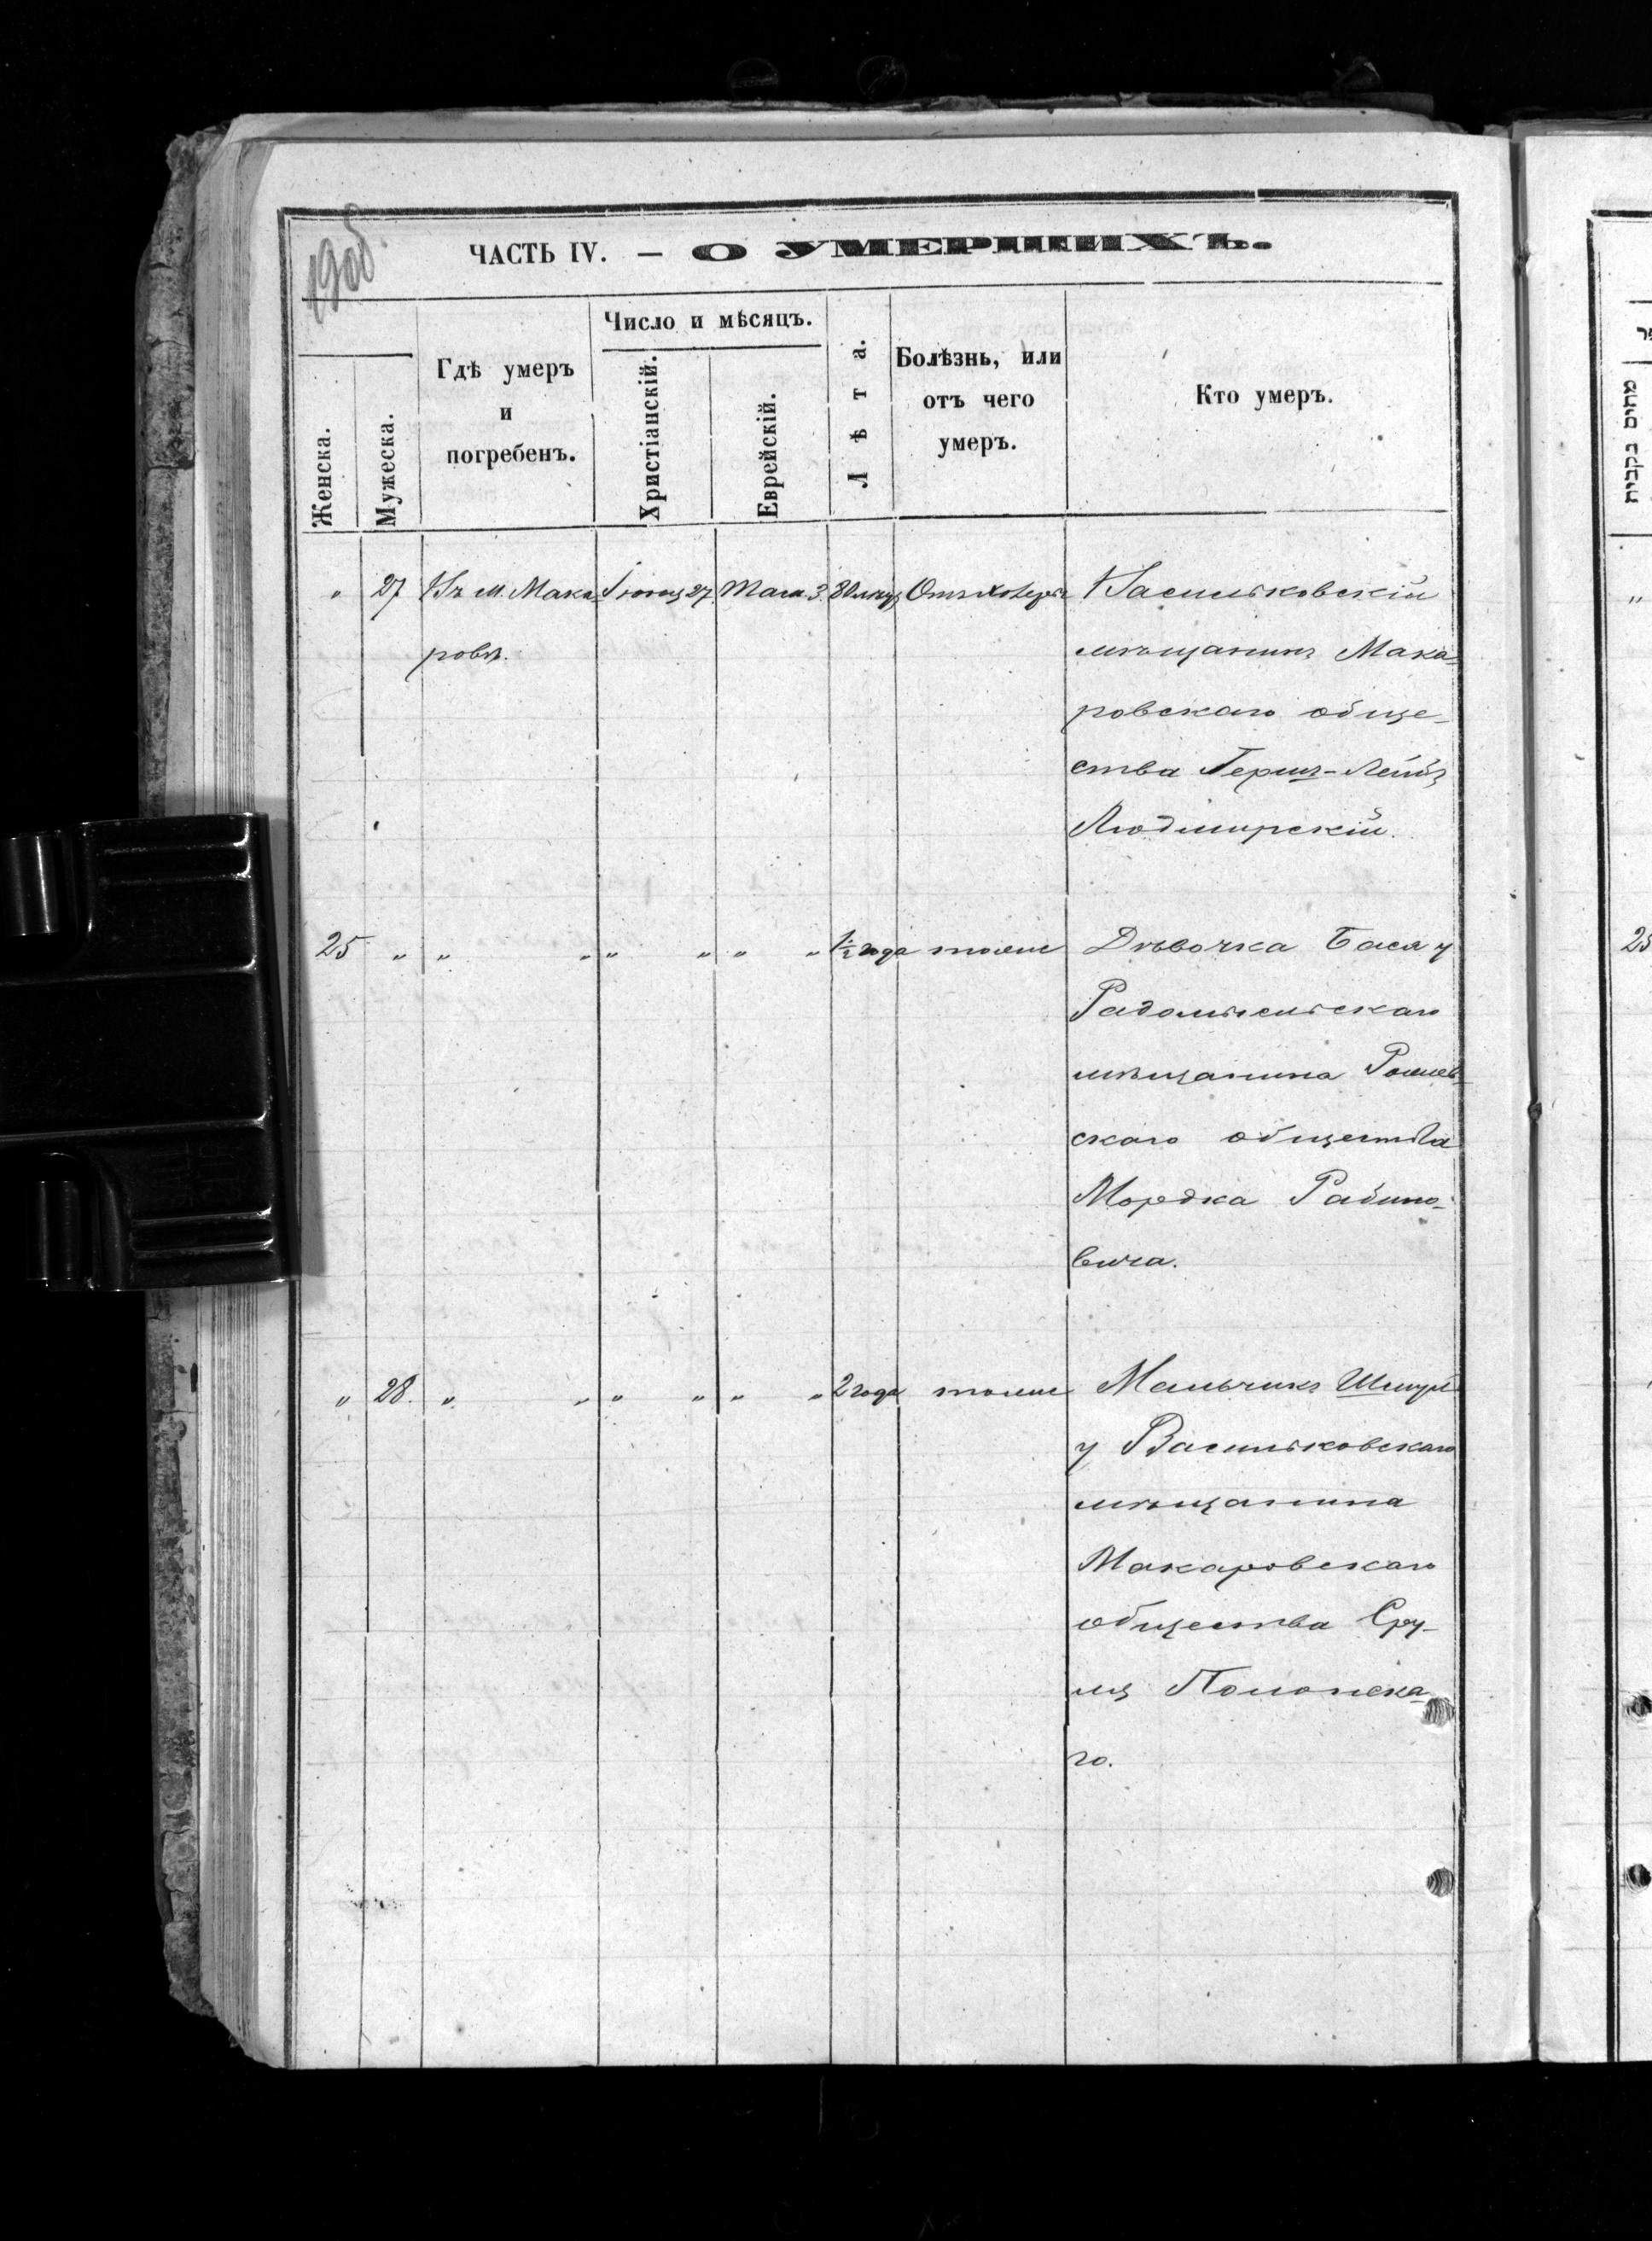 19об.
ЧАСТЬ IV. — О УМЕРШИХЪ.
Женска.
Мужеска.
Гдѣ умеръ
и
погребенъ.
Число и мѣсяцъ.
Христіанскій.
Еврейскій.
Лѣта.
Болѣзнь, или
отъ чего
умеръ.
Кто умеръ.
" 27 Въ м. Мака- Іюня 27. Там. 3. 80 лѣтъ Отъ холеры Васильковскій
ровѣ. мѣщанинъ Мака-
ровскаго обще-
ства Герш-Лейбъ
Людмирскій.
25 " " " " " " " 1½ года тоже Дѣвочка Бася у
Радомысльскаго
мѣщанина
скаго общества
Мордка Рабино-
вича.
" 28. " " " " " " 2 года тоже Мальчикъ Шмул
у Васильковскаго
мѣщанина
Макаровскаго
общества Сру-
ля Полонска-
го.
מתים נקבות
"
25